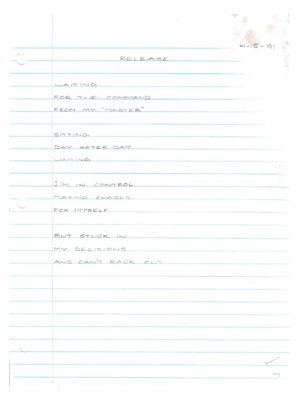 4-15-91
RELEASE
WAITING
FOR THE COMMAND
FROM MY "MASTER"
SITTING
DAY AFTER DAY
I'M IN CONTROL
MAKING CHOICES
FOR MYSELF
BUT STUCK IN
MY DECISIONS
AND CAN'T BACK OUT